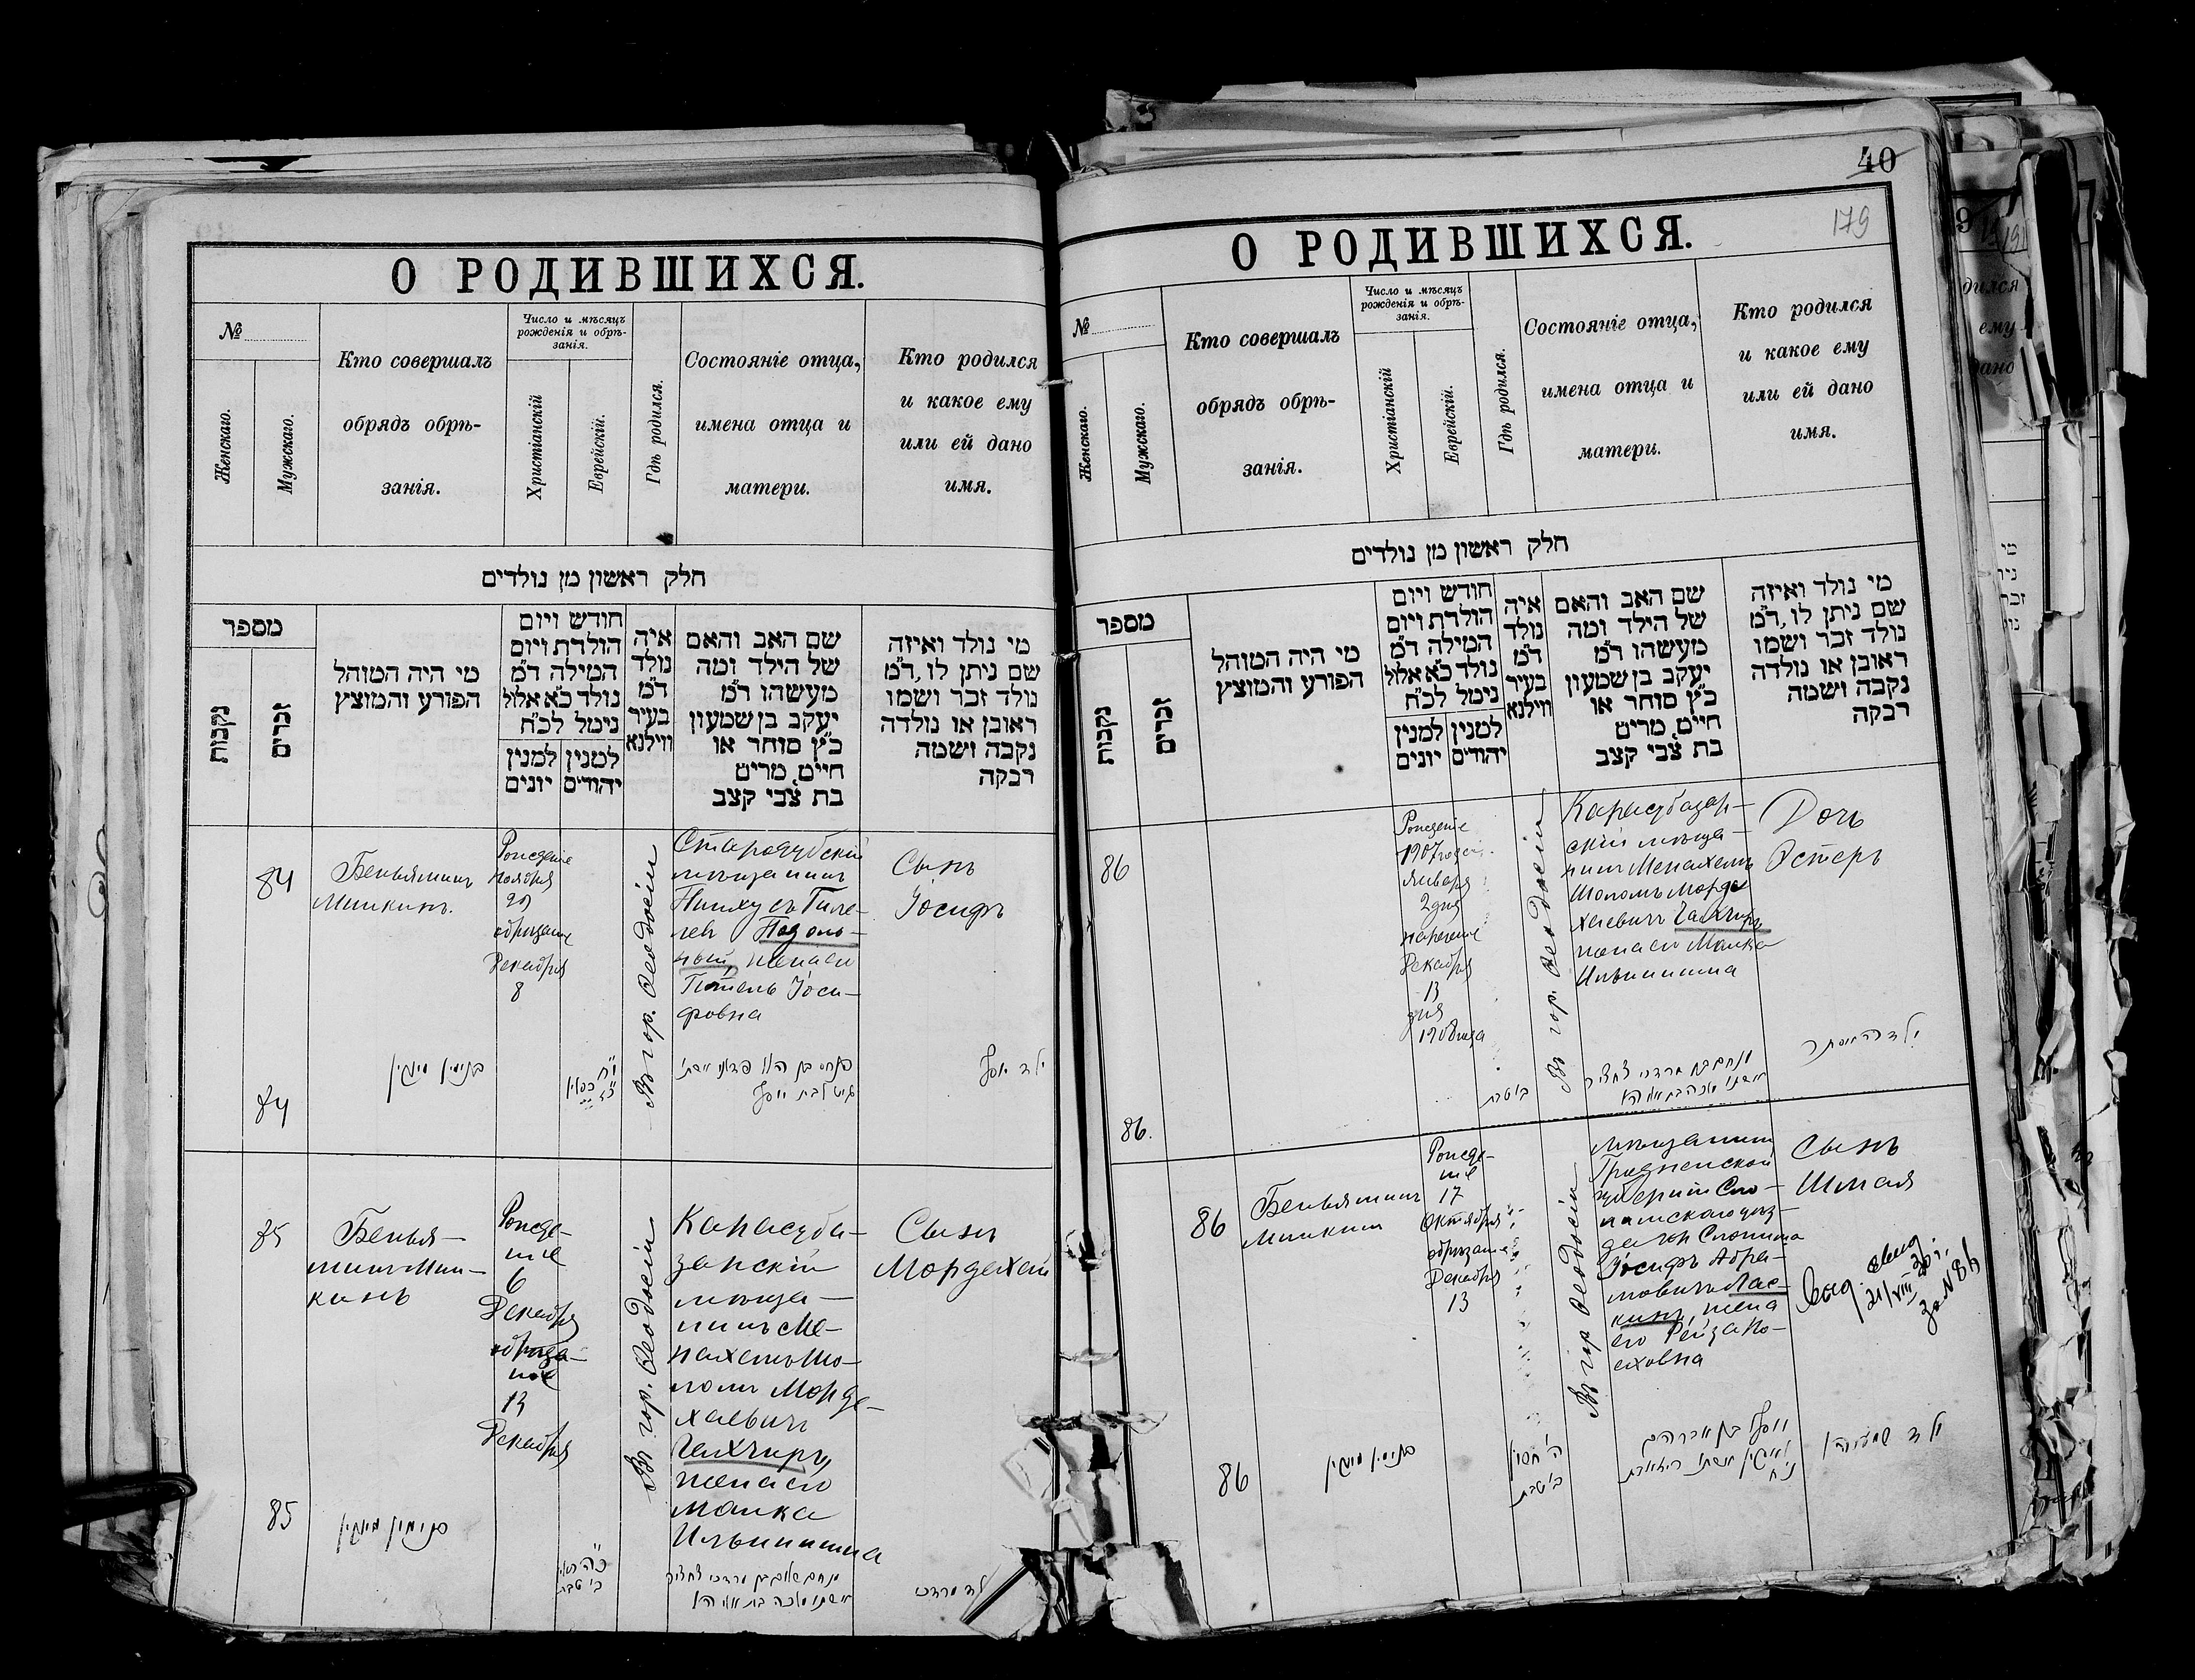 О РОДИВШИХСЯ.
№
Женскаго.
Мужскаго.
Кто совершалъ
обрядъ обрѣ-
занія.
Число и мѣсяцъ
рожденія и обрѣ-
занія.
Христіанскій
Еврейскій.
Гдѣ родился.
Состояніе отца,
имена отца и
матери.
Кто родился
и какое ему
или ей дано
имя.
חלק ראשון מן נולדים
מספר
נקבות
זכרים
מי היה המוהל
הפורע והמוצץ
חודש ויום
הולדת ויום
המילה ד״מ
נולד כ״א אלול
נימל לכ״ח
למנין
יונים
למנין
יהודים
איה
נולד
ד״מ
בעיר
ווילנא
שם האב והאם
של הילד ומה
מעשהו ד״מ
יעקב בן שמעון
כ״ץ סוחר או
חיים, מרים
בת צבי קצב
מי נולד ואיזה
שם ניתן לו, ד״מ
נולד זכר ושמו
ראובן או נולדה
נקבה ושמה
רבקה
84
Беньяминъ
Минкинъ.
Рожденіе
ноября
29
обрѣзаніе
Декабря
8
Въ гор. Ѳеодосіи
Стародубскій
мѣщанинъ
Пинхусъ Гиле-
лев Подоль-
ный, жена его
Гитель Іоси-
фовна
Сынъ
Іосифъ
בנימין מינקין
ילד יוסף
84
85
Бенья-
минъ Мин-
кинъ
Рожде-
ніе
6
Декабря
обрѣза-
ніе
13
Декабря
Въ гор. Ѳеодосіи
Карасуба-
зарскій
мѣща-
нинъ Ме-
нахемъ Шо-
ломъ Морде-
хаевичъ
Чахчиръ,
жена его
Малка
Ильинишна
Сынъ
Мордехай
85
בנימין מינקין
מנחם שלום בן מרדכי
אשתו מלכה בת אליהו
ילד מרדכי
40
179
О РОДИВШИХСЯ.
№
Женскаго.
Мужскаго.
Кто совершалъ
обрядъ обрѣ-
занія.
Число и мѣсяцъ
рожденія и обрѣ-
занія.
Христіанскій
Еврейскій.
Гдѣ родился.
Состояніе отца,
имена отца и
матери.
Кто родился
и какое ему
или ей дано
имя.
חלק ראשון מן נולדים
מספר
נקבות
זכרים
מי היה המוהל
הפורע והמוצץ
חודש ויום
הולדת ויום
המילה ד״מ
נולד כ״א אלול
נימל לכ״ח
למנין
יונים
למנין
יהודים
איה
נולד
ד״מ
בעיר
ווילנא
שם האב והאם
של הילד ומה
מעשהו ד״מ
יעקב בן שמעון
כ״ץ סוחר או
חיים, מרים
בת צבי קצב
מי נולד ואיזה
שם ניתן לו, ד״מ
נולד זכר ושמו
ראובן או נולדה
נקבה ושמה
רבקה
86
Рожденіе
1907 года
Января
2 дня
нареченіе
Декабря
13
дня
1908 года
Въ гор. Ѳеодосіи
Карасубазар-
скій мѣща-
нинъ Менахемъ
Шоломъ Морде
хаевичъ Чахчиръ,
жена его Малка
Ильинишна
Дочь
Эстеръ
86.
86
Беньяминъ
Минкинъ
Рожде-
ніе
17
Октября
обрѣзаніе
Декабря
13
Въ гор Ѳеодосіи
мѣщанинъ
Гродненской
губерніи Сло-
нимскаго уѣз-
да гор Слонима
Іосифъ Абра-
мовичъ Лас-
кинъ, жена
его Рейза Но-
еховна
Сынъ
Шмая
21/VIII
за №86
86
בנימין מינקין
יוסף בן אברהם